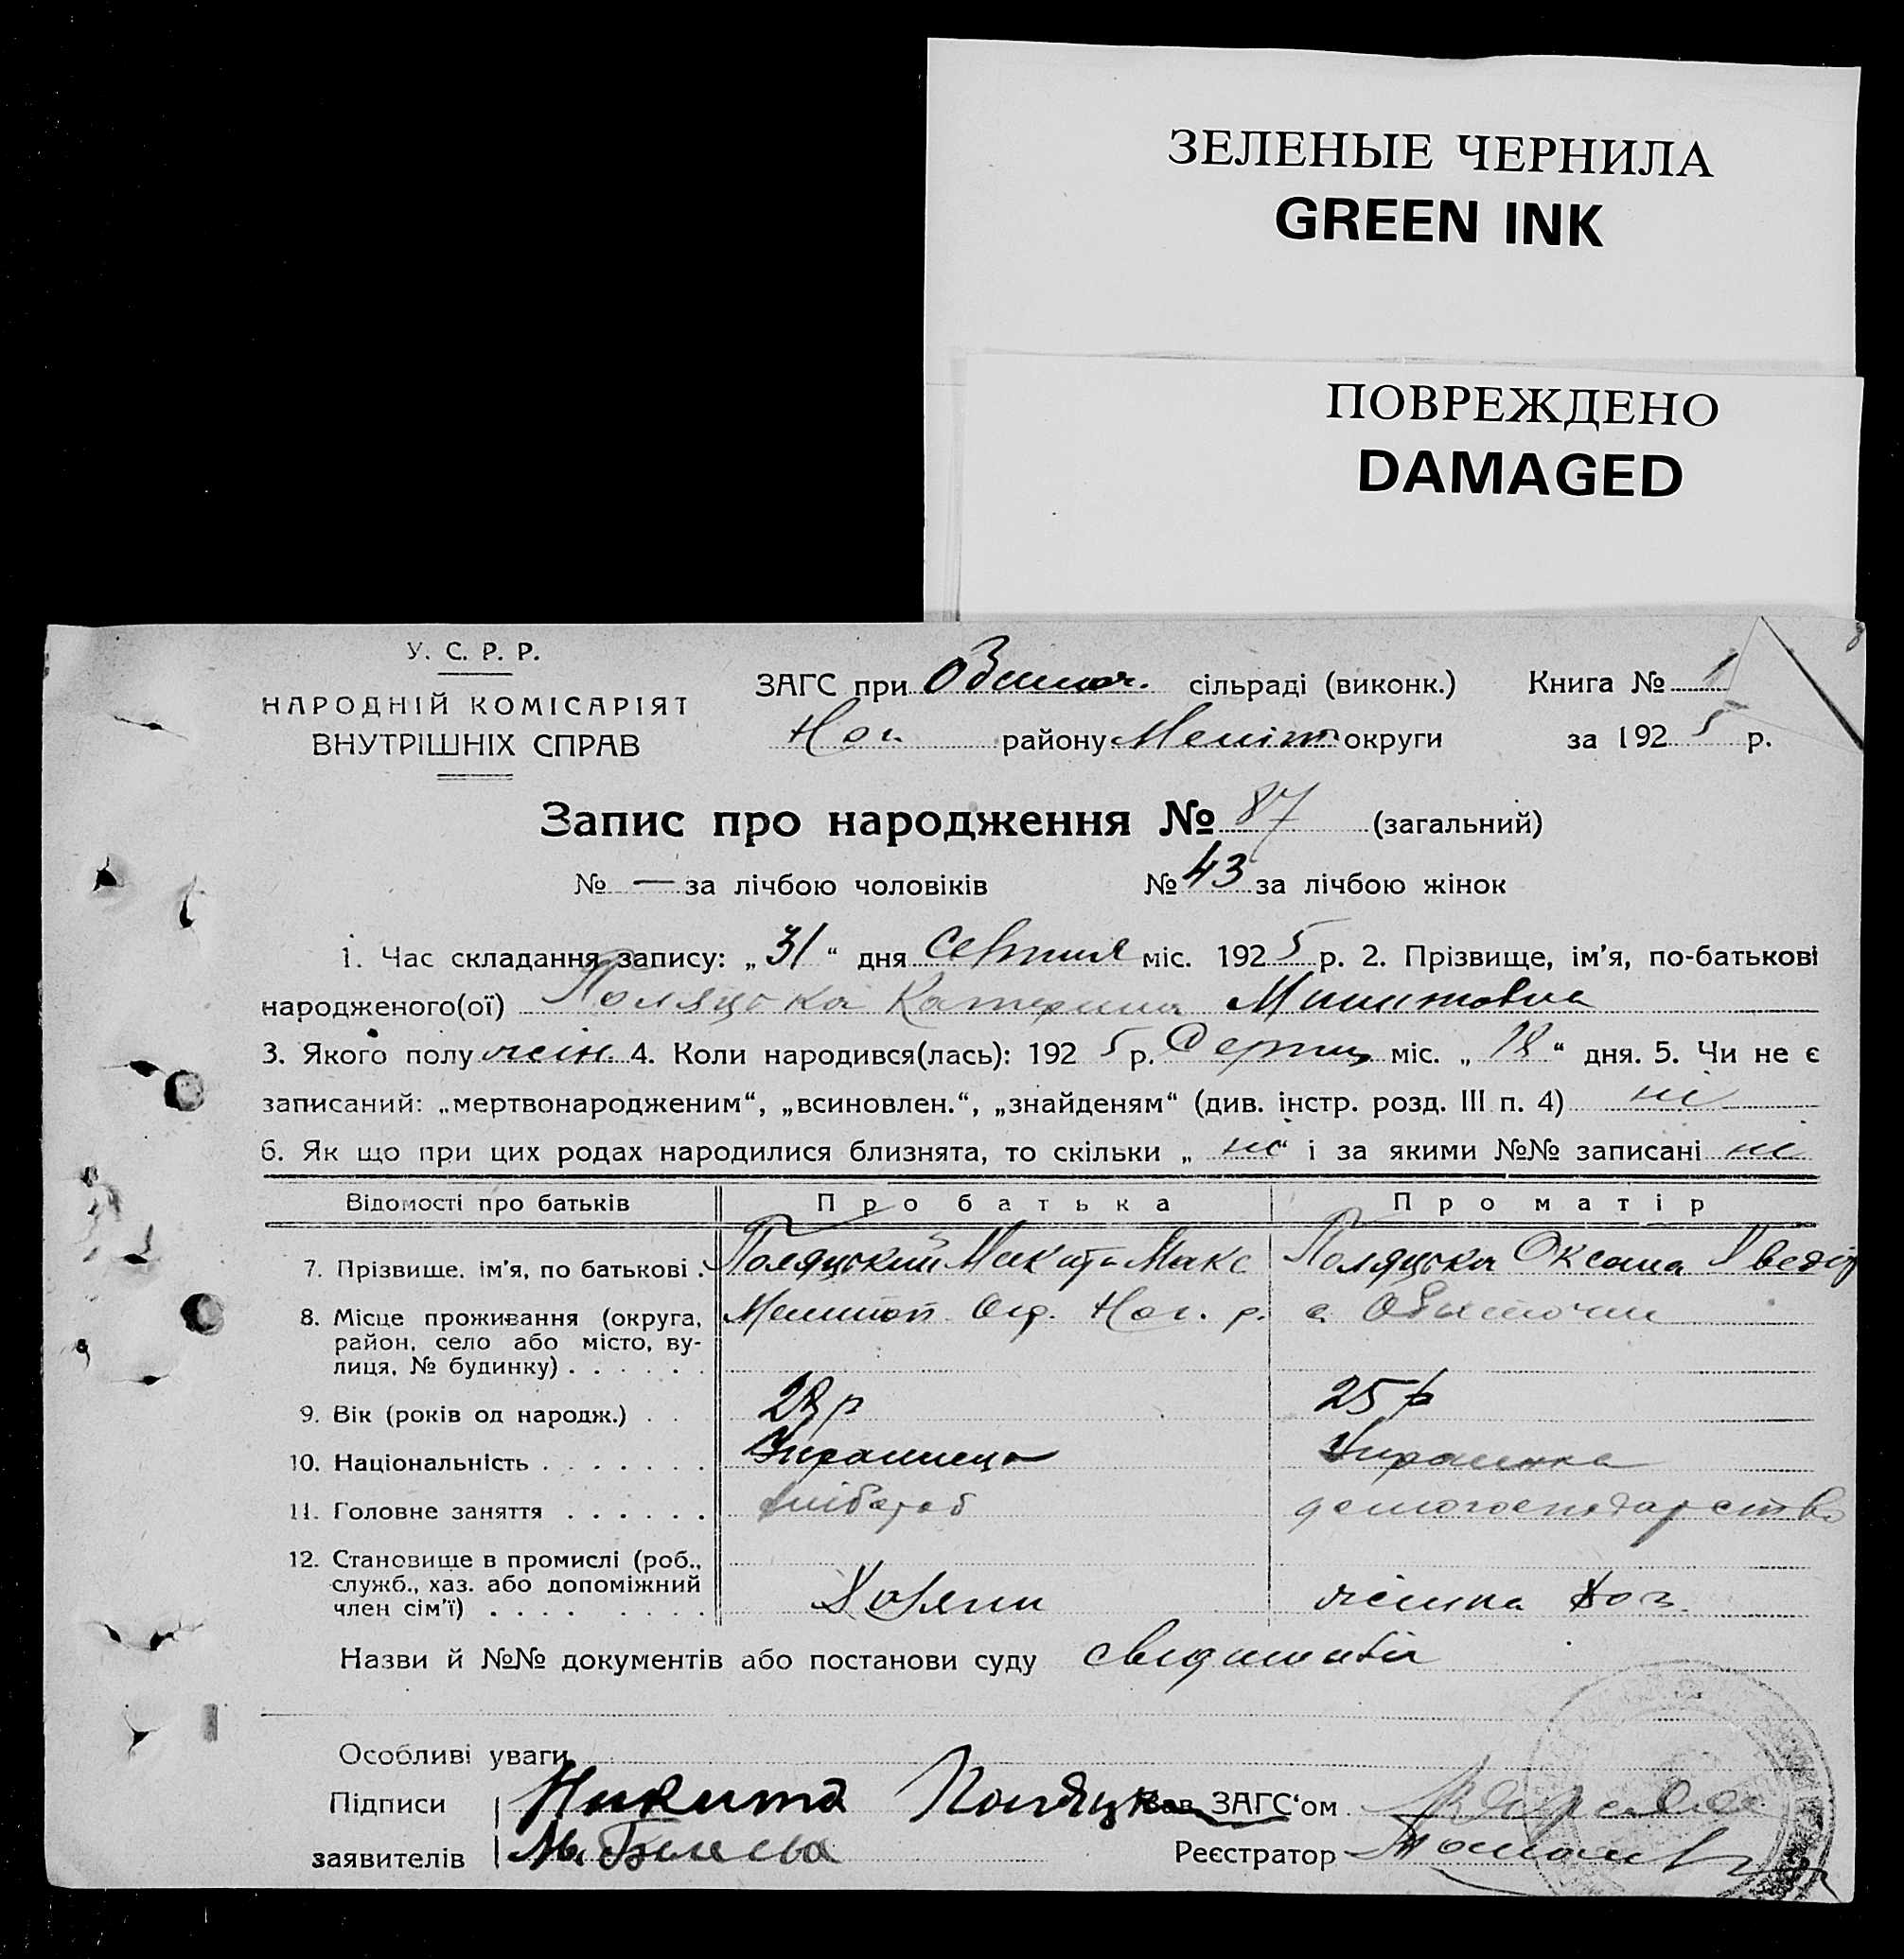 ЗЕЛЕНЫЕ ЧЕРНИЛА
GREEN INK
ПОВРЕЖДЕНО
DAMAGED
У. С. Р. Р.
НАРОДНІЙ КОМІСАРІЯТ
ВНУТРІШНІХ СПРАВ
ЗАГС при сільраді (виконк.) Книга № 1
Ног. району Меліт. округи за 1925 р.
Запис про народження № 87 (загальний)
№ — за лічбою чоловіків № 43 за лічбою жінок
1. Час складання запису: „31“ дня Серпня міс. 1925 р. 2. Прізвище, ім'я, по-батькові
народженого(ої) Поляцька Катерина
3. Якого полу жін. 4. Коли народився(лась): 1925 р. Серпня міс. „18“ дня. 5. Чи не є
записаний: „мертвонародженим“, „всиновлен.“, „знайденям“ (див. інстр. розд. III п. 4) ні
6. Як що при цих родах народилися близнята, то скільки „ні“ і за якими №№ записані ні
Відомості про батьків Про батька Про матір
7. Прізвище, ім'я, по батькові . Поляцький Макс Поляцька Оксана
8. Місце проживання (округа, Мелитоп. Окр. Ног. р. с.
район, село або місто, ву-
лиця, № будинку) . . . . . .
9. Вік (років од народж.) . . 28 р 25 р
10. Національність . . . . . . . Українець Українка
11. Головне заняття . . . . . . хлібороб домогосподарство
12. Становище в промислі (роб.,
служб., хаз. або допоміжний
член сім'ї) . . . . . . . . . Хозяин жінка хоз.
Назви й №№ документів або постанови суду
Особливі уваги
Підписи Никита Поляцкий Зав. ЗАГС'ом
заявителів М. Реєстратор